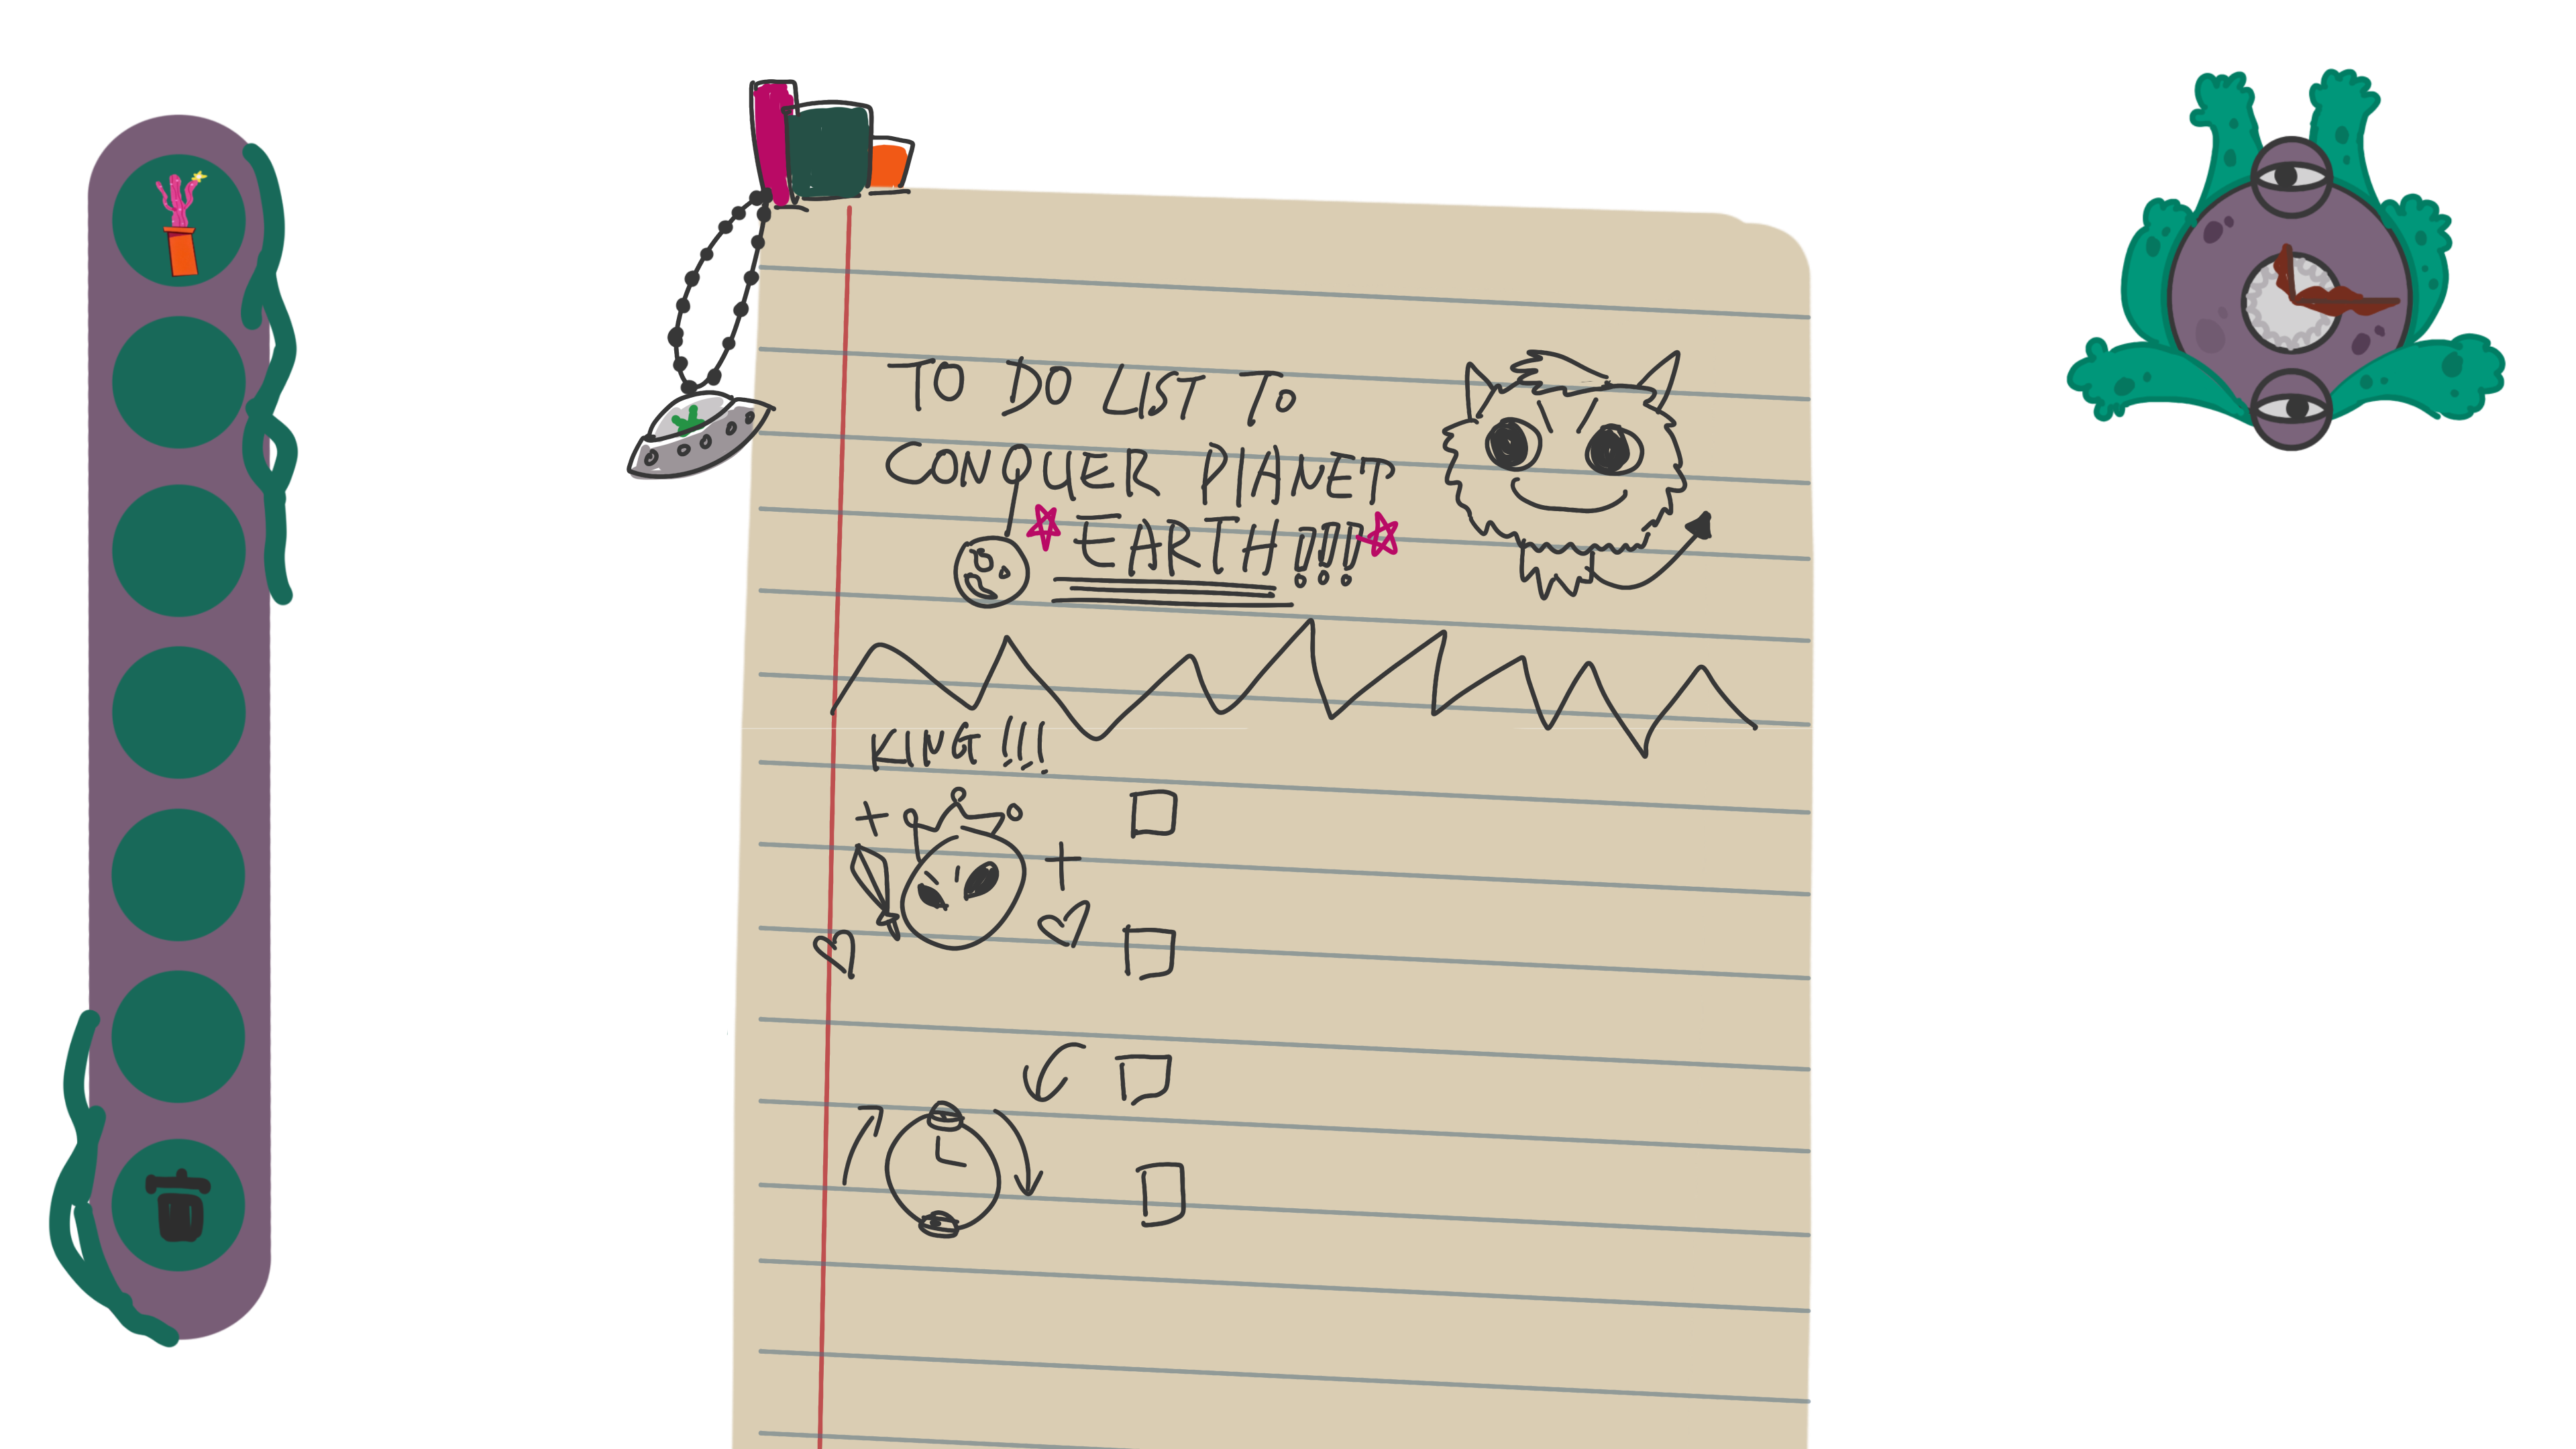 TO DO LIST TO
CONQUER PLANET
EARTH!!!
KING!!!